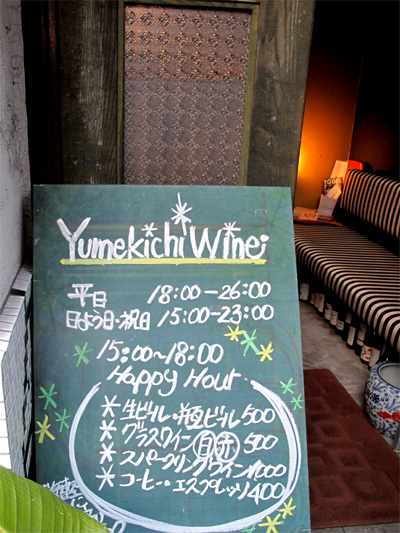 Yumekichi Wine
平日 18:00-26:00
日よう日・祝日 15:00-23:00
15:00~18:00
Happy Hour
*生ビール・瓶ビール500
*グラスワイン 白 赤 500
*スパークリングワイン1000
*コーヒー・エスプレッソ400